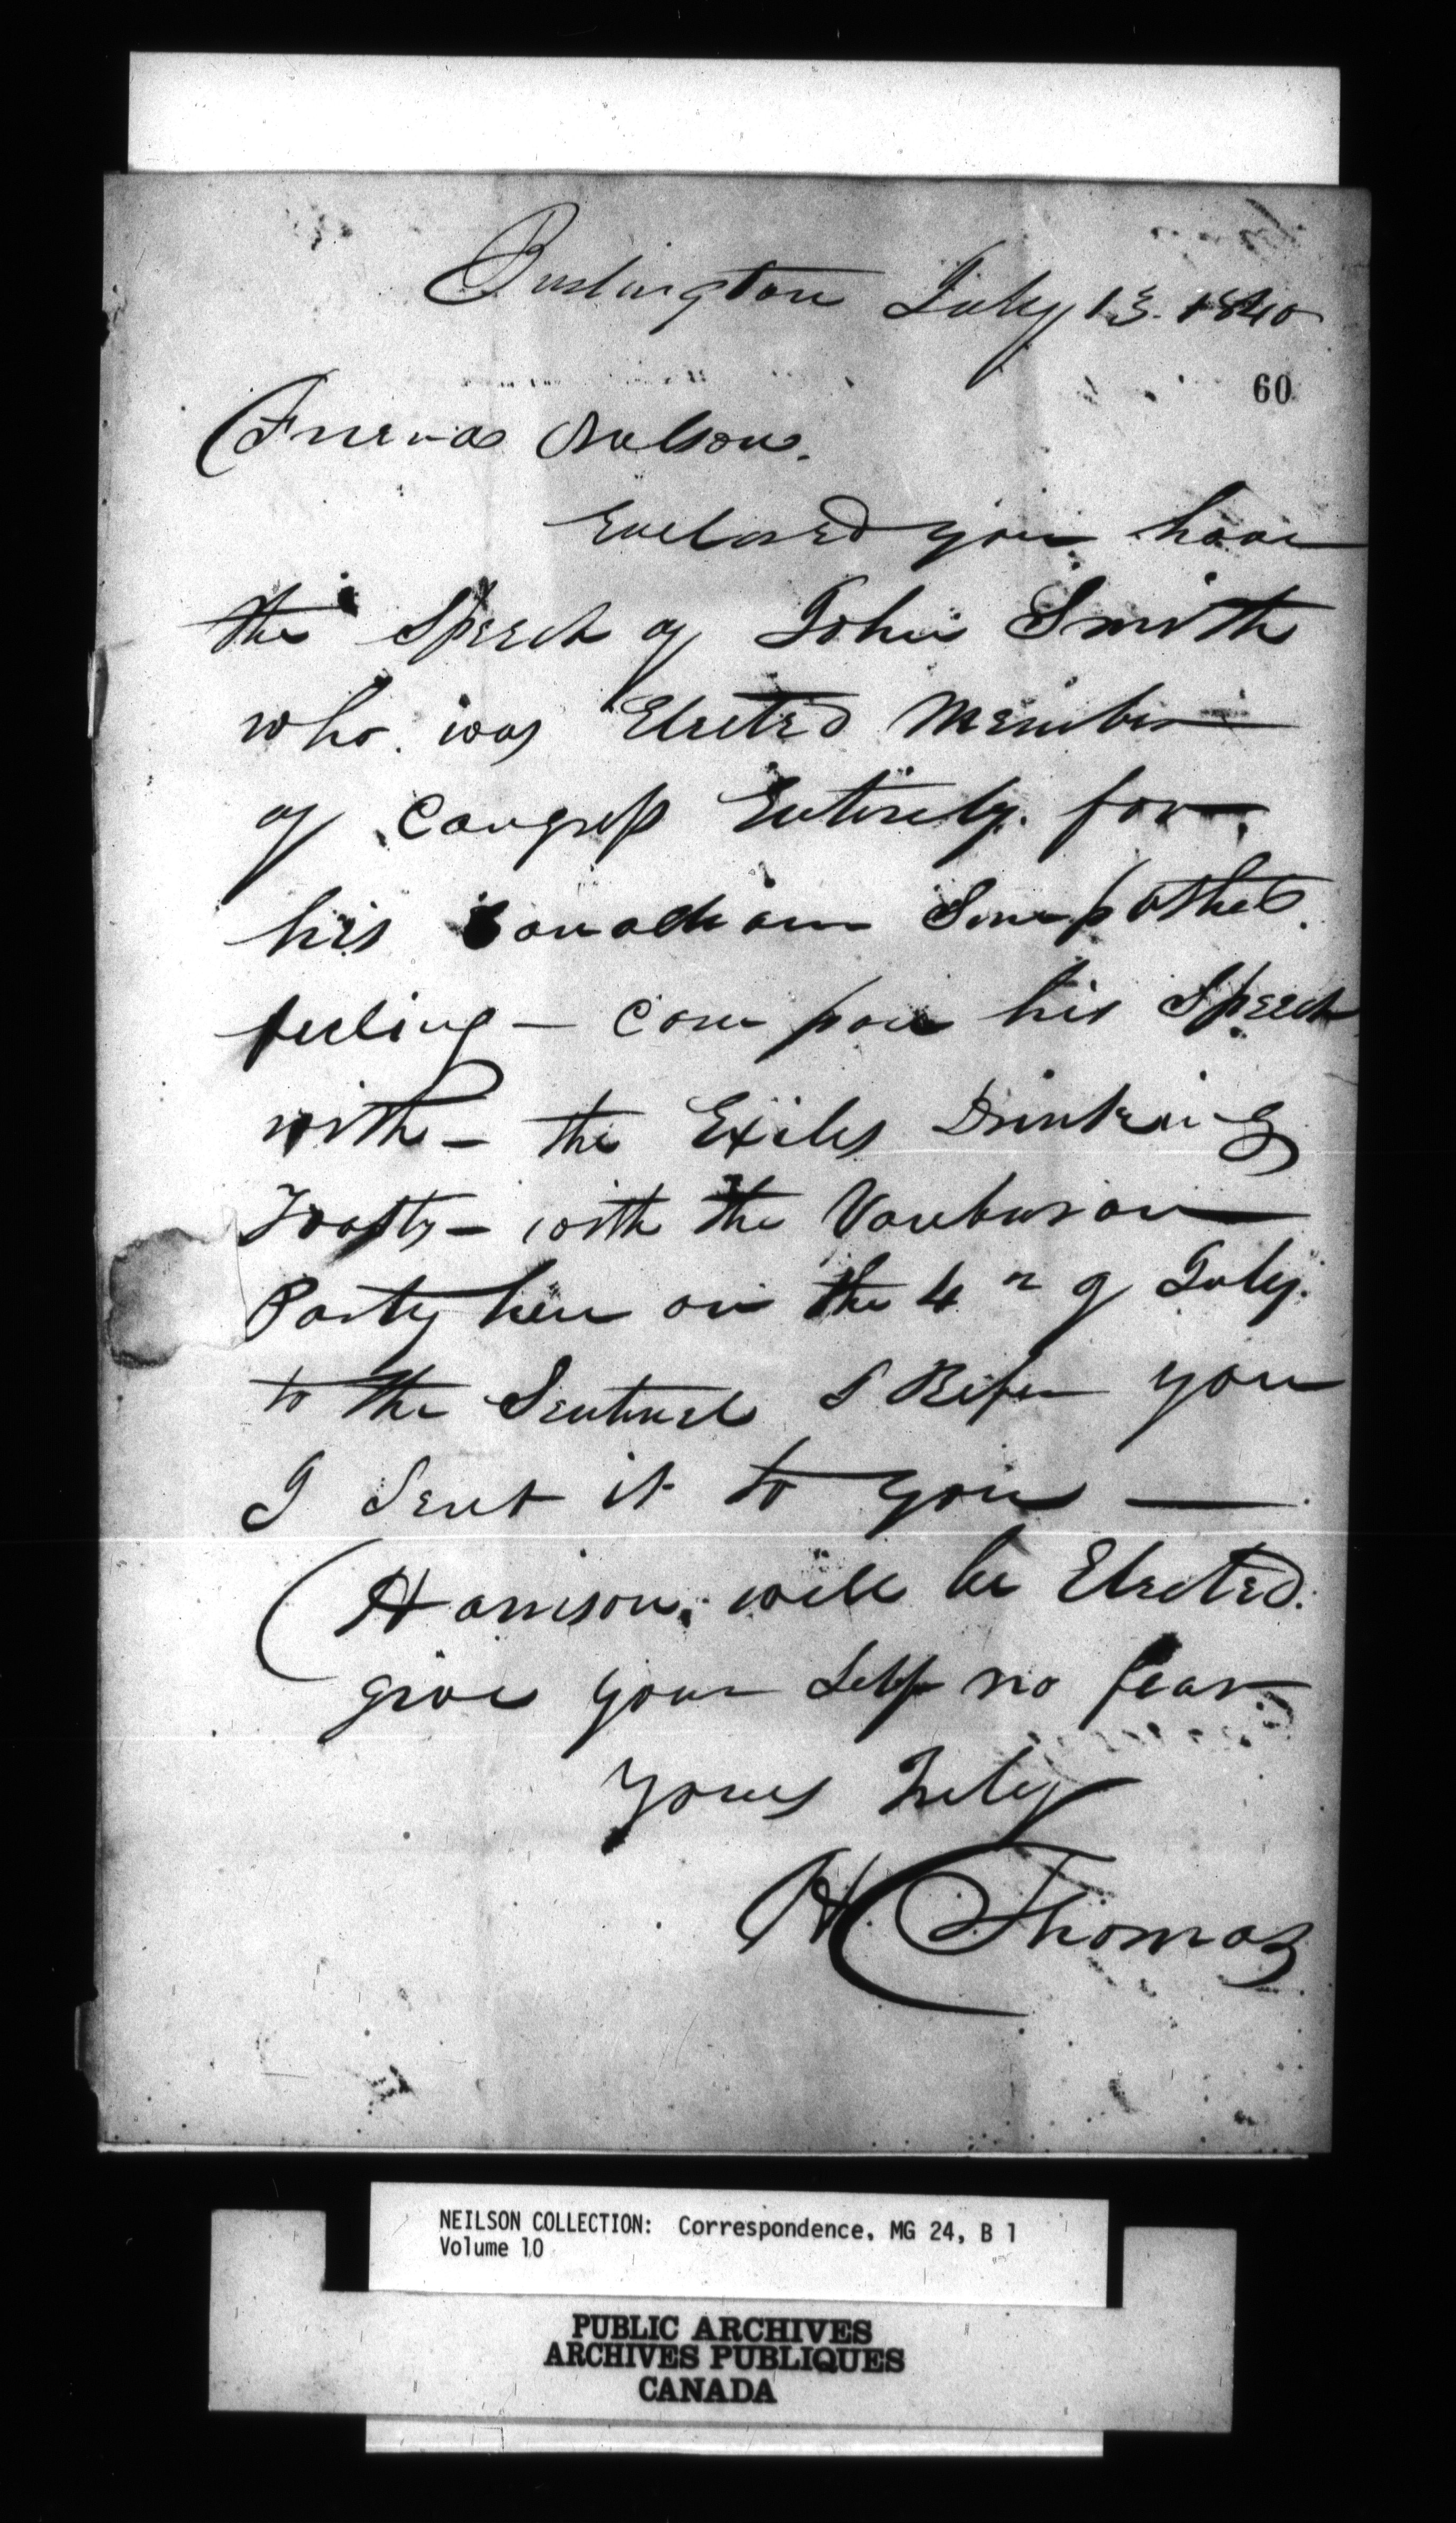 Burlington July 13. 1840
60
Friend Nelson.
Enclosed you have
the Speech of John Smith
who was Elected Member
of Congress Entirely for
his Canadian Simpathetc
feeling — Compare his Speech
with — the Exiles Drinking
Toasts — with the Vanburan
Party here on the 4th of July.
to the Sentinel I Refer you
I Sent it to you —
Harrison, will be Elected.
give your Self no fear
Yours Truly
H Thomas
NEILSON COLLECTION: Correspondence, MG 24, B 1
Volume 10
PUBLIC ARCHIVES
ARCHIVES PUBLIQUES
CANADA